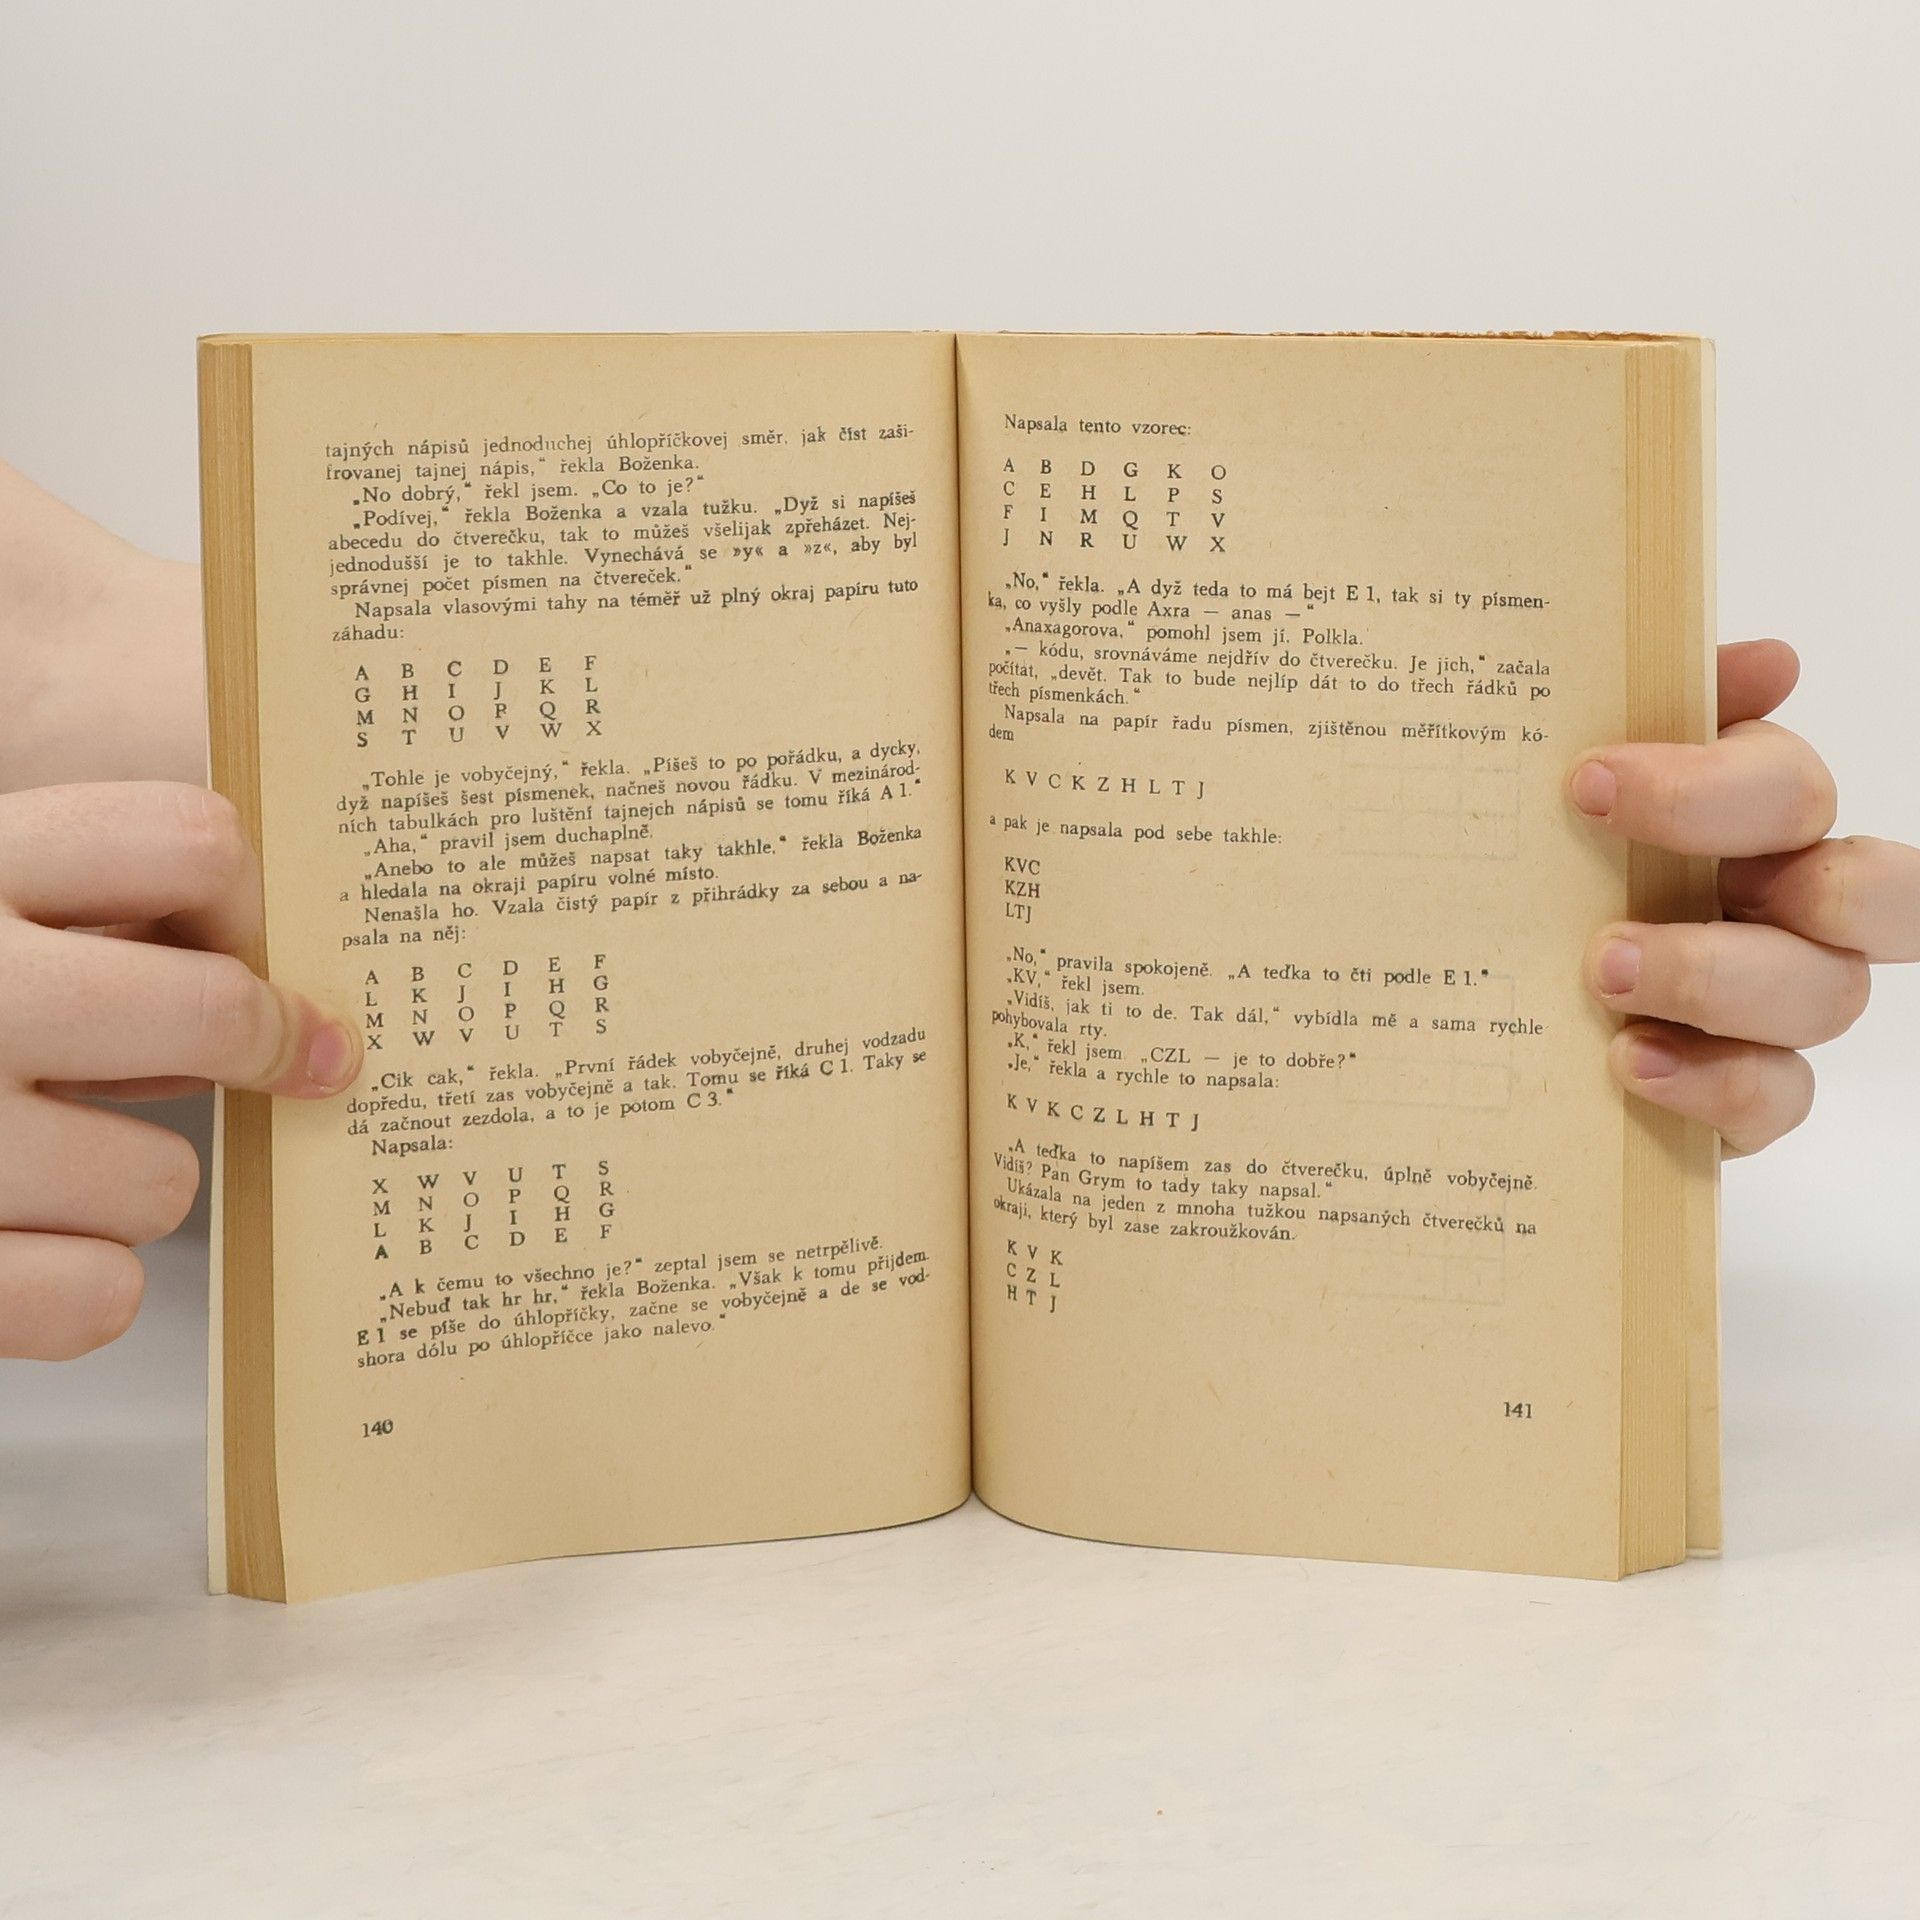 tajných nápisů jednoduchej úhlopříčkovej směr, jak číst zaši-
frovanej tajnej nápis,“ řekla Boženka.
„No dobrý,“ řekl jsem. „Co to je?“
„Podívej,“ řekla Boženka a vzala tužku. „Dyž si napíšeš
abecedu do čtverečku, tak to můžeš všelijak zpřeházet. Nej-
jednodušší je to takhle. Vynechává se »y« a »z«, aby byl
správnej počet písmen na čtvereček.“
Napsala vlasovými tahy na téměř už plný okraj papíru tuto
záhadu:
A B C D E F
G H I J K L
M N O P Q R
S T U V W X
„Tohle je vobyčejný,“ řekla. „Píšeš to po pořádku, a dycky,
dyž napíšeš šest písmenek, načneš novou řádku. V mezinárod-
ních tabulkách pro luštění tajnejch nápisů se tomu říká A 1.“
„Aha,“ pravil jsem duchaplně.
„Anebo to ale můžeš napsat taky takhle,“ řekla Boženka
a hledala na okraji papíru volné místo.
Nenašla ho. Vzala čistý papír z přihrádky za sebou a na-
psala na něj:
A B C D E F
L K J I H G
M N O P Q R
X W V U T S
„Cik cak,“ řekla. „První řádek vobyčejně, druhej vodzadu
dopředu, třetí zas vobyčejně a tak. Tomu se říká C 1. Taky se
dá začnout zezdola, a to je potom C 3.“
Napsala:
X W V U T S
M N O P Q R
L K J I H G
A B C D E F
„A k čemu to všechno je?“ zeptal jsem se netrpělivě.
„Nebuď tak hr hr,“ řekla Boženka. „Však k tomu přijdem.
E 1 se píše do úhlopříčky, začne se vobyčejně a de se vod-
shora dólu po úhlopříčce jako nalevo.“
140
Napsala tento vzorec:
A B D G K O
C E H L P S
F I M Q T V
J N R U W X
„No,“ řekla. „A dyž teda to má bejt E 1, tak si ty písmen-
ka, co vyšly podle Axra — anas —“
„Anaxagorova,“ pomohl jsem jí. Polkla.
„— kódu, srovnáváme nejdřív do čtverečku. Je jich,“ začala
počítat, „devět. Tak to bude nejlíp dát to do třech řádků po
třech písmenkách.“
Napsala na papír řadu písmen, zjištěnou měřítkovým kó-
dem
K V C K Z H L T J
a pak je napsala pod sebe takhle:
KVC
KZH
LTJ
„No,“ pravila spokojeně. „A teďka to čti podle E 1.“
„KV,“ řekl jsem.
„Vidíš, jak ti to de. Tak dál,“ vybídla mě a sama rychle
pohybovala rty.
„K,“ řekl jsem. „CZL — je to dobře?“
„Je,“ řekla a rychle to napsala:
K V K C Z L H T J
„A teďka to napíšem zas do čtverečku, úplně vobyčejně.
Vidíš? Pan Grym to tady taky napsal.“
Ukázala na jeden z mnoha tužkou napsaných čtverečků na
okraji, který byl zase zakroužkován.
K V K
C Z L
H T J
141